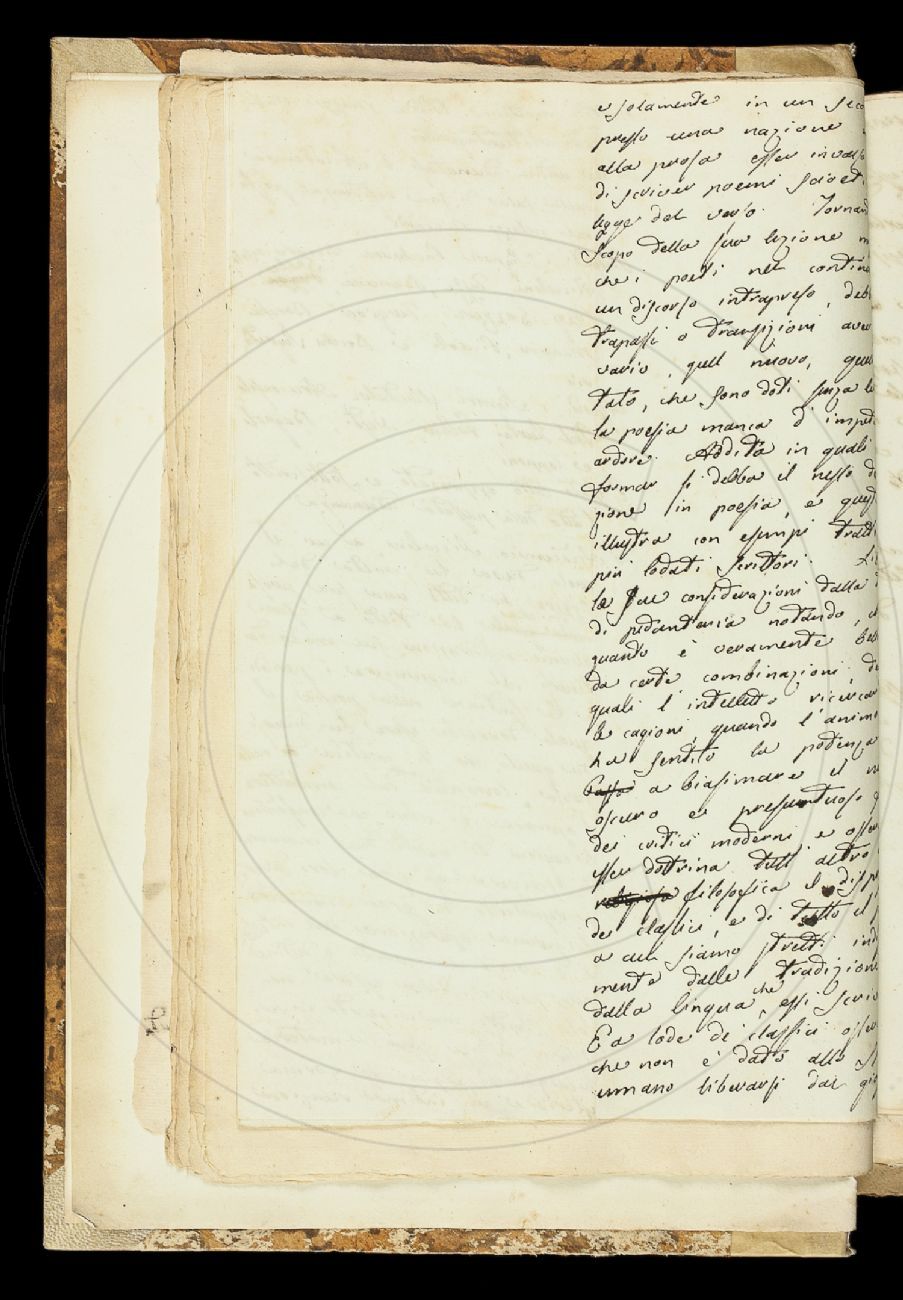 e solamente in un seco
presso una nazione
alla prosa esser invalso
di scriver poemi sciolti
legge del verso. Tornan
Scopo della sua lezione
che i poeti nel contin
un discorso intrapreso, deb
trapassi o transizioni aven
vario, quel nuovo, quel
tato, che sono doti senza le
la poesia manca d'impet
ardore. Addita in quali
formar si debba il nesso d
zione in poesia, e ques
illustra con esempi tratti
più lodati Scrittori. Li
le sue considerazioni dalla
di pedanteria notando, c
quanto è veramente bel
da certe combinazioni, de
quali l'intelletto ricercar
le cagioni, quando l'anim
ha sentito la potenza
passa a biasimare il
oscuro e presuntuoso
dei critici moderni e osser
esser dottrina tutt'altro
religiosa filosofica il disp
de' classici, e di tutto il
a cui siamo stretti ind
mente dalle tradizion
dalla lingua che essi scriv
E a lode de' classici osser
che non è dato allo
umano liberarsi dal gi